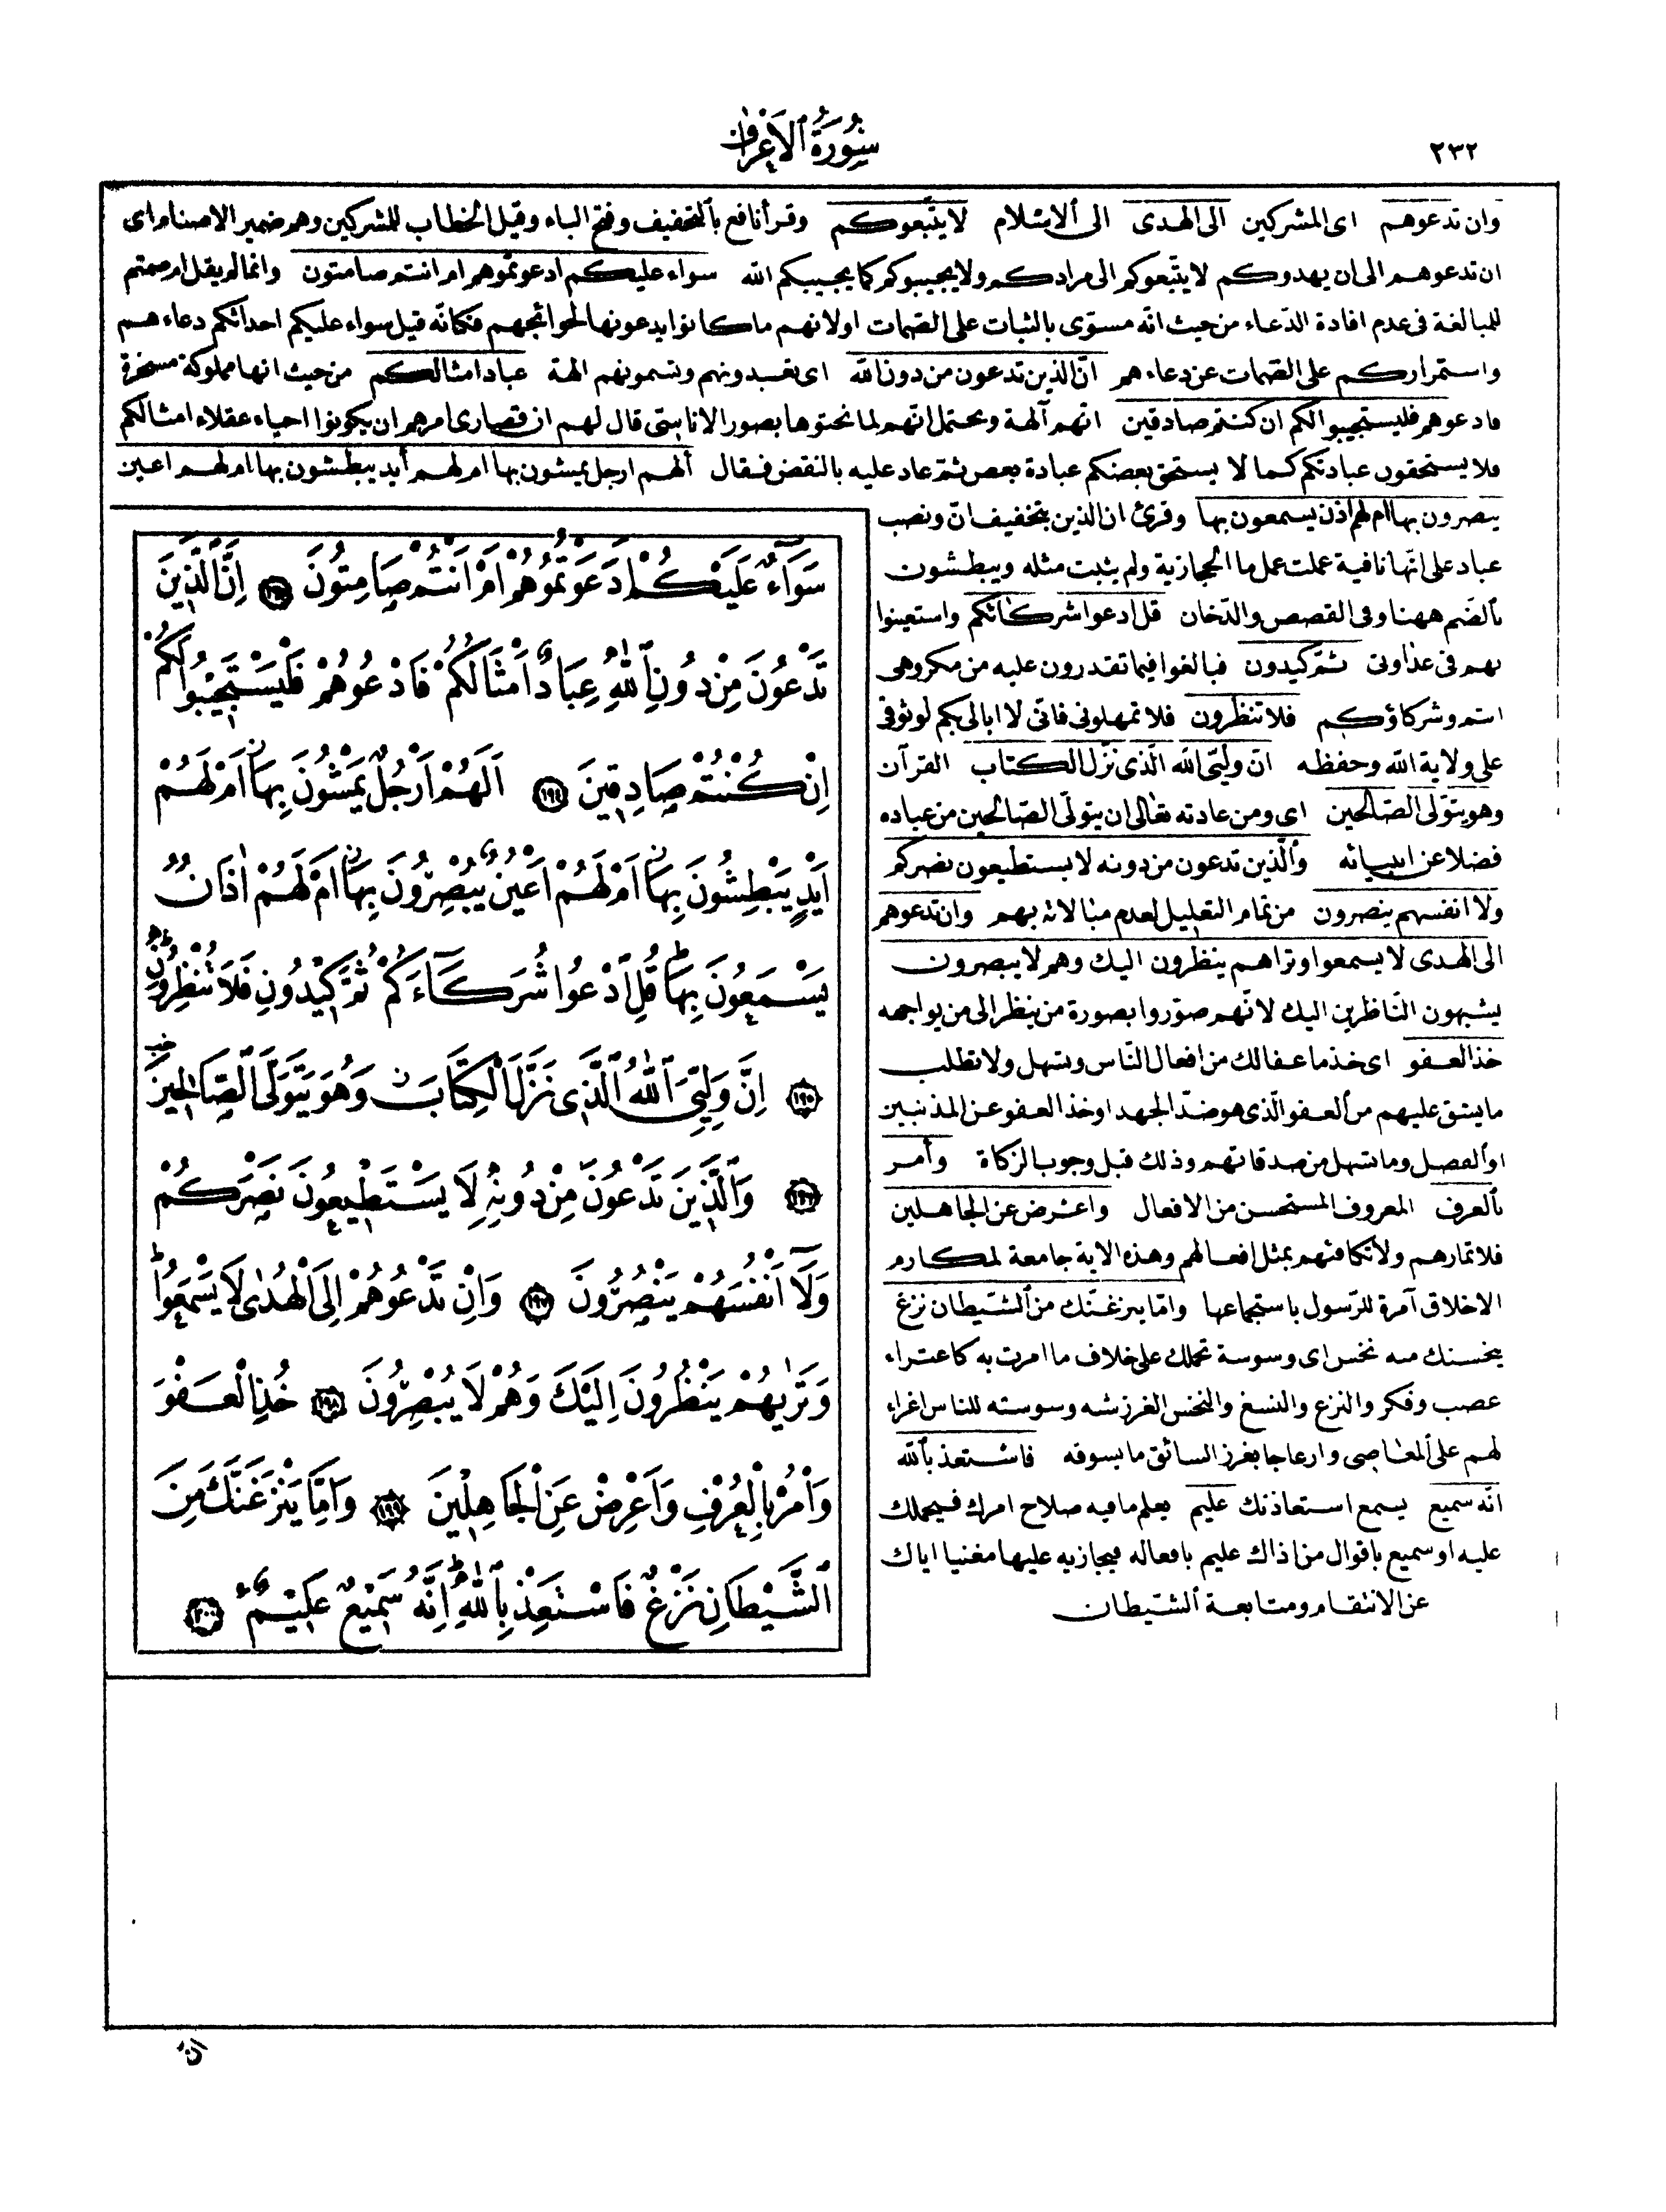 ٢٣٢
سورة الاعراف
وان تدعوهم اى المشركين الى الهدى الى الاسلام لا يتبعوكم وقرأ نافع بالتخفيف وفتح الباء وقيل الخطاب للمشركين وهم ضمير الاصنام اى
ان تدعوهم الى ان يهدوكم لا يتبعوكم الى مرادكم ولا يجيبوكم كما يجيبكم الله سواء عليكم ادعوتموهم ام انتم صامتون وانما لم يقل ام صمتم
للمبالغة فى عدم افادة الدعاء من حيث انه مسوّى بالثبات على الصمات او لانهم ما كانوا يدعونها لحوائجهم فكانه قيل سواء عليكم احداثكم دعاءهم
واستمراركم على الصمات عن دعاءهم ان الذين تدعون من دون الله اى تعبدونهم وتسمونهم الهة عباد امثالكم من حيث انها مملوكة مسخرة
فادعوهم فليستجيبوا لكم ان كنتم صادقين انهم آلهة ويحتمل انهم لما نحتوها بصور الاناسى قال لهم ان قصارى امرهم ان يكونوا احياء عقلاء امثالكم
فلا يستحقون عبادتكم كما لا يستحق بعضكم عبادة بعض ثم عاد عليه بالنقض فقال ألهم ارجل يمشون بها ام لهم أيد يبطشون بها ام لهم اعين
يبصرون بها ام لهم اذن يسمعون بها وقرئ ان الذين بتخفيف ان ونصب
عباد على انها نافية عملت عمل ما الحجازية ولم يثبت مثله ويبطشون
بالضم ههنا وفى القصص والدخان قل ادعوا شركائكم واستعينوا
بهم فى عداوتى ثم كيدون فبالغوا فيما تقدرون عليه من مكروهى
انتم وشركاؤكم فلا تنظرون فلا تمهلونى فانى لا ابالى بكم لوثوقى
على ولاية الله وحفظه ان وليى الله الذى نزل الكتاب القرآن
وهو يتولى الصالحين اى ومن عادته تعالى ان يتولى الصالحين من عباده
فضلا عن انبيائه والذين تدعون من دونه لا يستطيعون نصركم
ولا انفسهم ينصرون من تمام التعليل لعدم مبالاته بهم وان تدعوهم
الى الهدى لا يسمعوا وتراهم ينظرون اليك وهم لا يبصرون
يشبهون الناظرين اليك لانهم صوروا بصورة من ينظر الى من يواجهه
خذ العفو اى خذ ما عفا لك من افعال الناس وتسهل ولا تطلب
ما يشق عليهم من العفو الذى هو ضد الجهد او خذ العفو عن المذنبين
او الفضل وما تسهل من صدقاتهم وذلك قبل وجوب الزكاة وأمر
بالعرف المعروف المستحسن من الافعال واعرض عن الجاهلين
فلا تمارهم ولا تكافئهم بمثل افعالهم وهذه الاية جامعة لمكارم
الاخلاق آمرة للرسول باستجماعها واما ينزغنك من الشيطان نزغ
ينخسنك منه نخس اى وسوسة تحملك على خلاف ما امرت به كاعتراء
غضب وفكر والنزغ والنسغ والنخس الغرز شبه وسوسته للناس اغراء
لهم على المعاصى وازعاجا بغرز السائق ما يسوقه فاستعذ بالله
انه سميع يسمع استعاذتك عليم يعلم ما فيه صلاح امرك فيحملك
عليه او سميع باقوال من اذاك عليم بافعاله فيجازيه عليها مغنيا اياك
عن الانتقام ومتابعة الشيطان
سَوَٓاءٌ عَلَيْكُمْ اَدَعَوْتُمُوهُمْ اَمْ اَنْتُمْ صَامِتُونَ ﴿١٩٣﴾ اِنَّ الَّذ۪ينَ
تَدْعُونَ مِنْ دُونِ اللّٰهِ عِبَادٌ اَمْثَالُكُمْ فَادْعُوهُمْ فَلْيَسْتَج۪يبُوا لَكُمْ
اِنْ كُنْتُمْ صَادِق۪ينَ ﴿١٩٤﴾ اَلَهُمْ اَرْجُلٌ يَمْشُونَ بِهَاۘ اَمْ لَهُمْ
اَيْدٍ يَبْطِشُونَ بِهَاۘ اَمْ لَهُمْ اَعْيُنٌ يُبْصِرُونَ بِهَاۘ اَمْ لَهُمْ اٰذَانٌ
يَسْمَعُونَ بِهَاۜ قُلِ ادْعُوا شُرَكَٓاءَكُمْ ثُمَّ ك۪يدُونِ فَلَا تُنْظِرُونِ
﴿١٩٥﴾ اِنَّ وَلِيِّيَ اللّٰهُ الَّذ۪ى نَزَّلَ الْكِتَابَ وَهُوَ يَتَوَلَّى الصَّالِح۪ينَ
﴿١٩٦﴾ وَالَّذ۪ينَ تَدْعُونَ مِنْ دُونِه۪ لَا يَسْتَط۪يعُونَ نَصْرَكُمْ
وَلَٓا اَنْفُسَهُمْ يَنْصُرُونَ ﴿١٩٧﴾ وَاِنْ تَدْعُوهُمْ اِلَى الْهُدٰى لَا يَسْمَعُواۜ
وَتَرٰيهُمْ يَنْظُرُونَ اِلَيْكَ وَهُمْ لَا يُبْصِرُونَ ﴿١٩٨﴾ خُذِ الْعَفْوَ
وَأْمُرْ بِالْعُرْفِ وَاَعْرِضْ عَنِ الْجَاهِل۪ينَ ﴿١٩٩﴾ وَاِمَّا يَنْزَغَنَّكَ مِنَ
الشَّيْطَانِ نَزْغٌ فَاسْتَعِذْ بِاللّٰهِۜ اِنَّهُ سَم۪يعٌ عَل۪يمٌ ﴿٢٠٠﴾